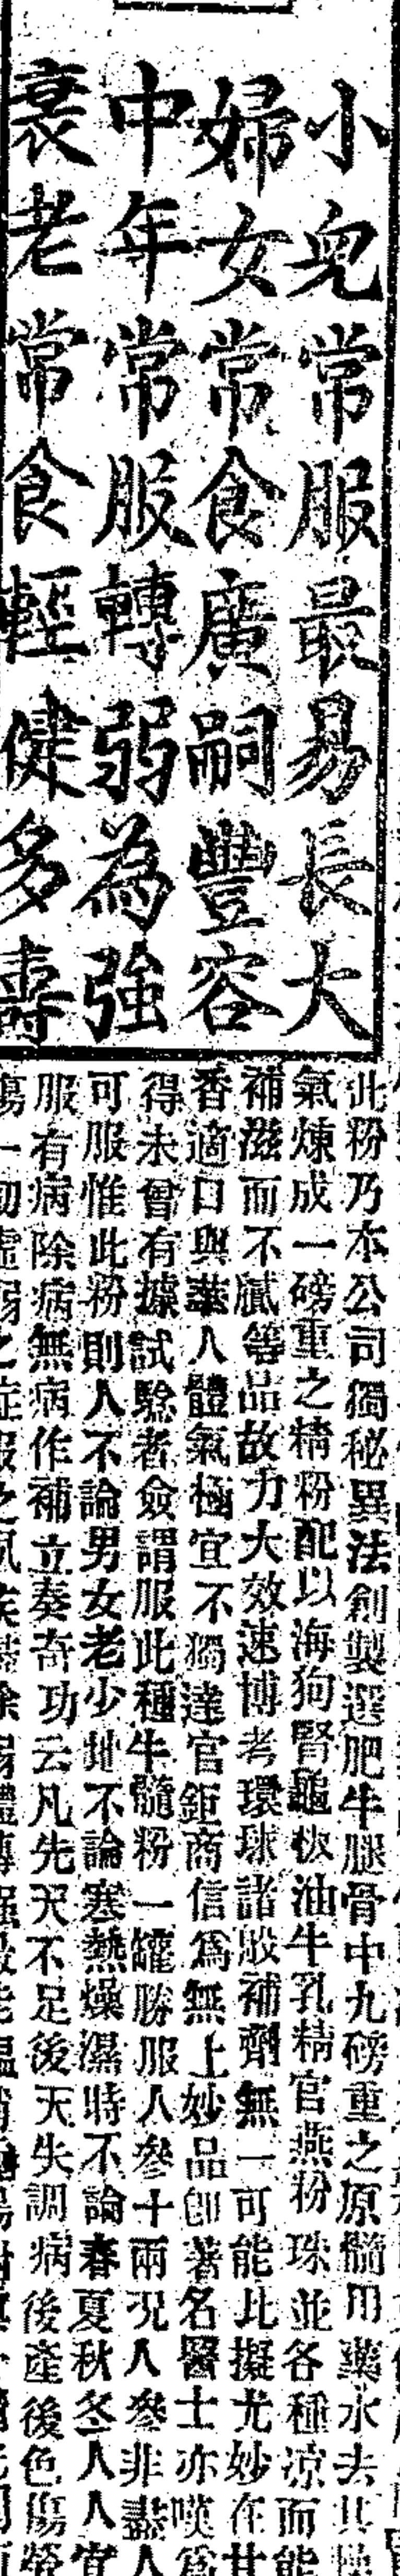 小兒常服最易長大
婦女常食廣嗣豐容
中年常服轉弱為強
衰老常食輕健多壽
此粉乃本公司獨秘異法創製選肥牛腿骨中九磅重之原髓用藥水去其
氣煉成一磅重之精粉配以海狗腎龜板油牛乳精官燕粉珠並各種凉而能
補滋而不膩等品故力大效速博考環球諸般補劑無一可能比擬尤妙在甘
香適口與華人體氣極宜不獨達官鉅商信爲無上妙品卽著名醫士亦嘆爲
得未曾有據試驗者僉謂服此種牛髓粉一罐勝服人參十兩况人參非盡人
可服惟此粉則人不論男女老少地不論寒熱燥濕時不論春夏秋冬人人宜
服有病除病無病作補立奏奇功云凡先天不足後天失調病後產後色傷
傷一切虛弱之症服之